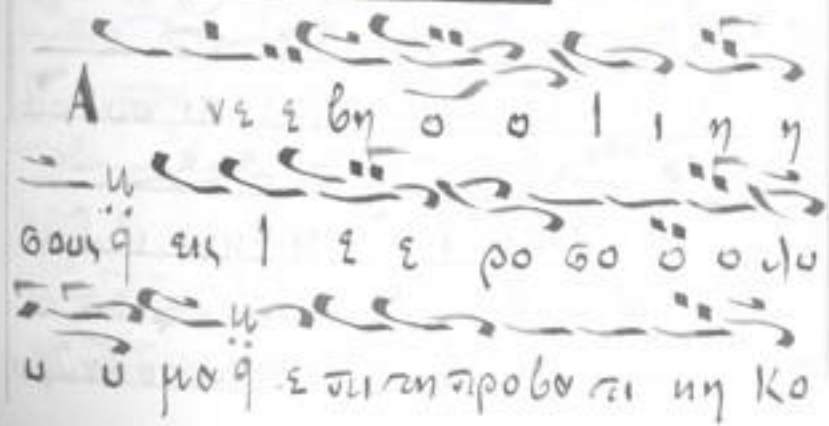 Α νε ε βη ο ο Ι ι η η
σους εις Ι ε ε ρο σο ο ο λυ
υ υ μα ε πι τη προβα τι κη κο